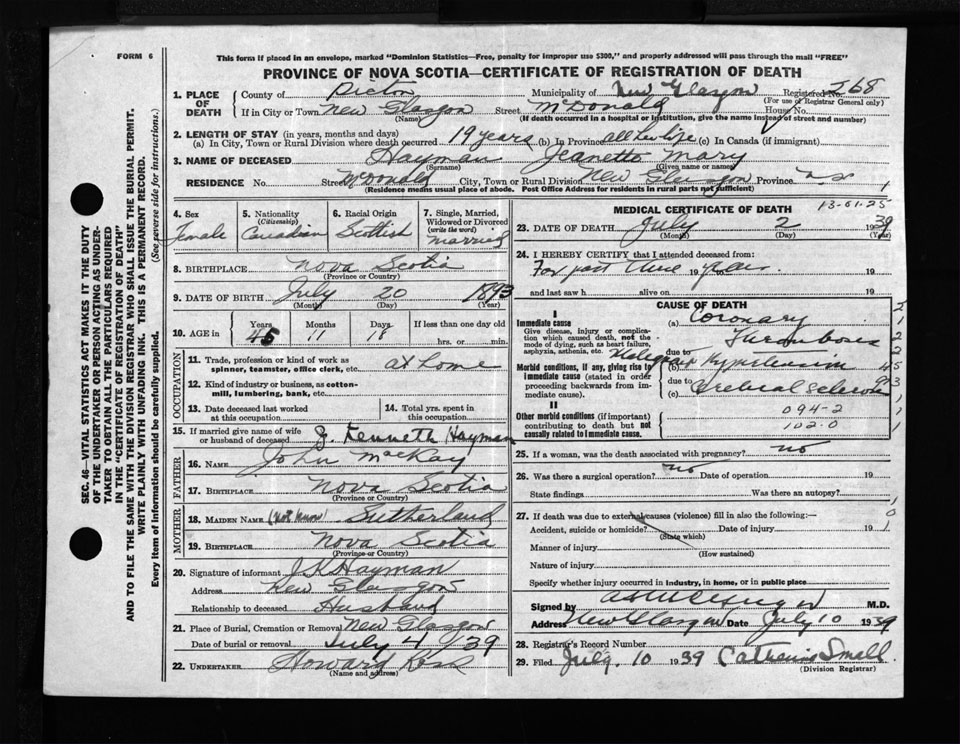 FORM 6
This form if placed in an envelope, marked "Dominion Statistics—Free, penalty for improper use $300," and properly addressed will pass through the mail "FREE"
PROVINCE OF NOVA SCOTIA—CERTIFICATE OF REGISTRATION OF DEATH
1. PLACE OF DEATH County of Pictou Municipality of New Glasgow Registered No. 268
(For use of Registrar General only)
If in City or Town New Glasgow Street McDonald House No.
(Name) (If death occurred in a hospital or institution, give the name instead of street and number)
2. LENGTH OF STAY (in years, months and days)
(a) In City, Town or Rural Division where death occurred 19 years (b) In Province all her life (c) In Canada (if immigrant)
3. NAME OF DECEASED Hayman Jeanette Mary
(Surname) (Given name or names)
RESIDENCE No. Street McDonald City, Town or Rural Division New Glasgow Province n.s. 1
(Residence means usual place of abode. Post Office Address for residents in rural parts not sufficient)
4. Sex Female
5. Nationality (Citizenship) Canadian
6. Racial Origin Scottish
7. Single, Married, Widowed or Divorced (write the word) Married
8. BIRTHPLACE Nova Scotia
(Province or Country)
9. DATE OF BIRTH July 20 1893
(Month) (Day) (Year)
10. AGE in Years 45 Months 11 Days 18 If less than one day old hrs. or min.
OCCUPATION
11. Trade, profession or kind of work as spinner, teamster, office clerk, etc. at home
12. Kind of industry or business, as cotton-mill, lumbering, bank, etc.
13. Date deceased last worked at this occupation
14. Total yrs. spent in this occupation
15. If married give name of wife or husband of deceased J. Kenneth Hayman
FATHER
16. NAME John MacKay
17. BIRTHPLACE Nova Scotia
(Province or Country)
MOTHER
18. MAIDEN NAME (Not Known) Sutherland
19. BIRTHPLACE Nova Scotia
(Province or Country)
20. Signature of informant J K Hayman
Address New Glasgow
Relationship to deceased Husband
21. Place of Burial, Cremation or Removal New Glasgow
Date of burial or removal July 4/39
22. UNDERTAKER Howard Ross
(Name and address)
MEDICAL CERTIFICATE OF DEATH 13-01-25
23. DATE OF DEATH July 2 1939
(Month) (Day) (Year)
24. I HEREBY CERTIFY that I attended deceased from:
For past three 19 years. 19
and last saw h alive on 19
CAUSE OF DEATH
I
Immediate cause
Give disease, injury or complication which caused death, not the mode of dying, such as heart failure, asphyxia, asthenia, etc.
(a) Coronary Thrombosis
due to
Morbid conditions, if any, giving rise to immediate cause (stated in order proceeding backwards from immediate).
(b) Hypertension
due to
(c) Cerebral Sclerosis
II
Other morbid conditions (if important) contributing to death but not causally related to immediate cause.
094-2
102-0
25. If a woman, was the death associated with pregnancy? no
26. Was there a surgical operation? no Date of operation 19
State findings Was there an autopsy?
27. If death was due to external causes (violence) fill in also the following:—
Accident, suicide or homicide? Date of injury 19
(State which)
Manner of injury
(How sustained)
Nature of injury
Specify whether injury occurred in industry, in home, or in public place
Signed by M.D.
Address New Glasgow Date July 10 1939
28. Registrar's Record Number
29. Filed July. 10 1939 Catherine Small
(Division Registrar)
SEC. 46—VITAL STATISTICS ACT MAKES IT THE DUTY
OF THE UNDERTAKER OR PERSON ACTING AS UNDER-
TAKER TO OBTAIN ALL THE PARTICULARS REQUIRED
IN THE "CERTIFICATE OF REGISTRATION OF DEATH"
AND TO FILE THE SAME WITH THE DIVISION REGISTRAR WHO SHALL ISSUE THE BURIAL PERMIT.
WRITE PLAINLY WITH UNFADING INK. THIS IS A PERMANENT RECORD.
Every item of information should be carefully supplied. (See reverse side for instructions.)